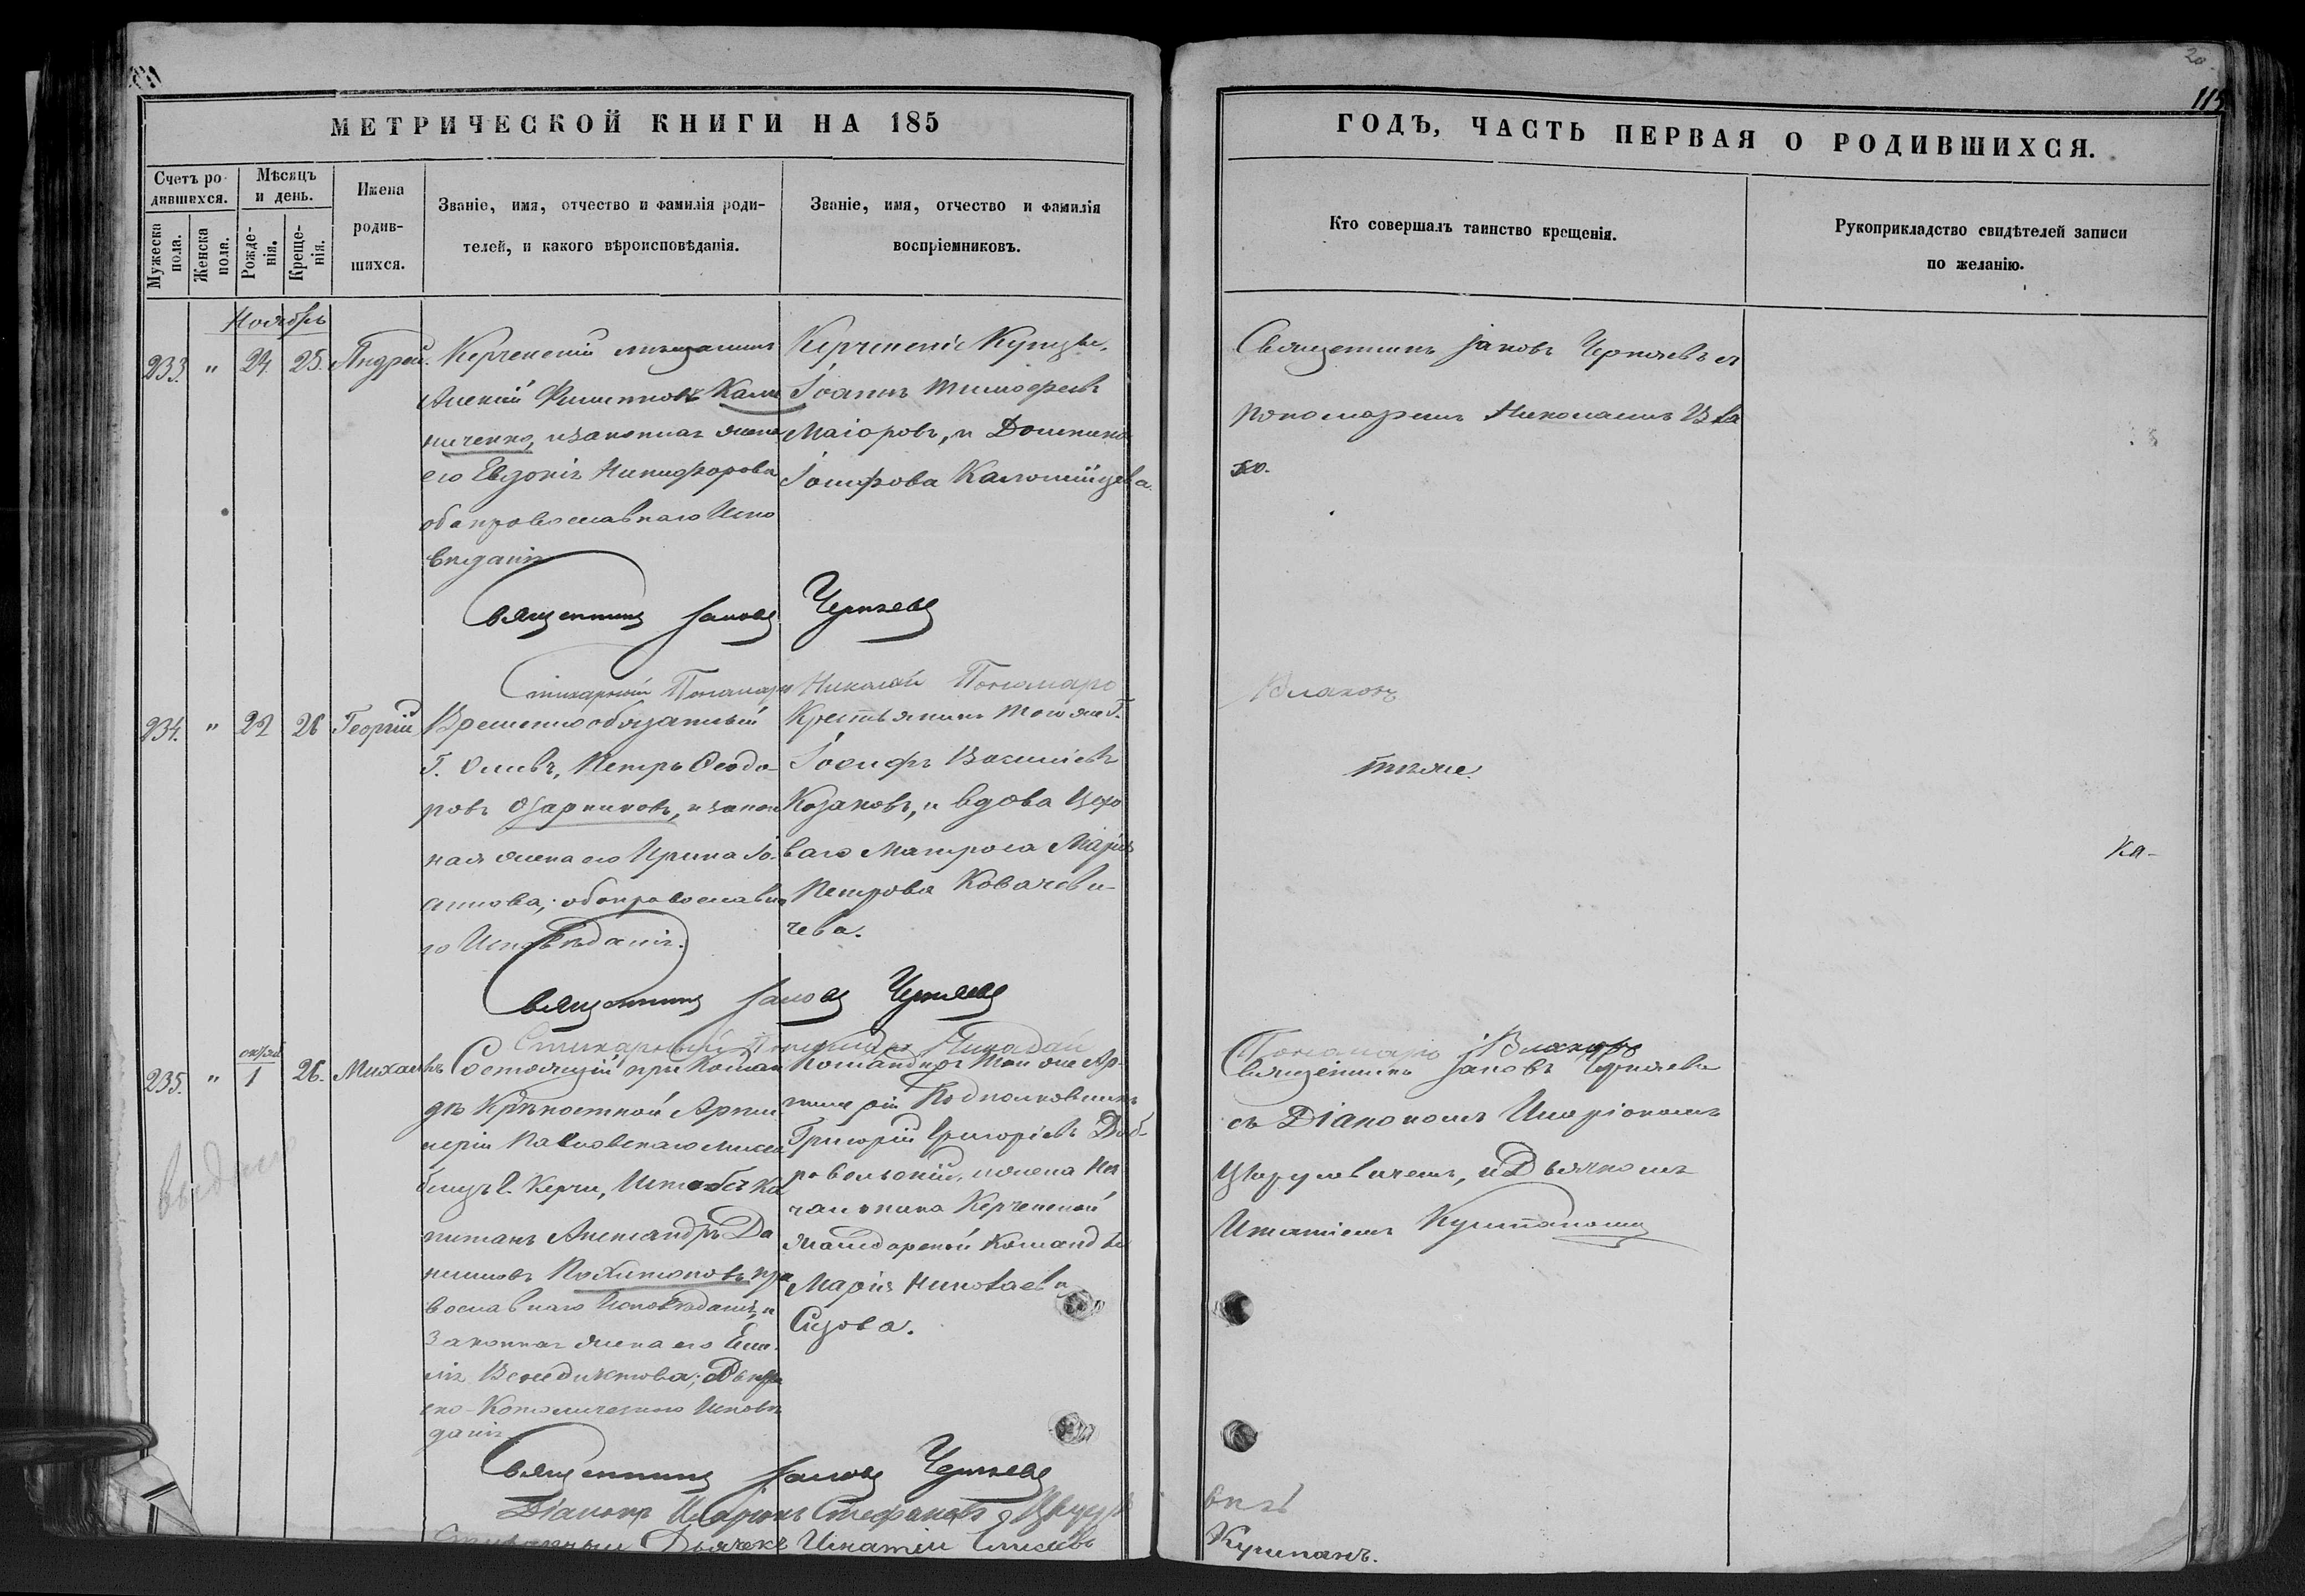 МЕТРИЧЕСКОЙ КНИГИ НА 185
ГОДЪ, ЧАСТЬ ПЕРВАЯ О РОДИВШИХСЯ.
20
115
Счетъ ро-
дившихся.
Мужеска пола.
Женска пола.
Мѣсяцъ
и день.
Рожде-
нія.
Креще-
нія.
Имена
родив-
шихся.
Званіе, имя, отчество и фамилія роди-
телей, и какого вѣроисповѣданія.
Званіе, имя, отчество и фамилія
воспріемниковъ.
Кто совершалъ таинство крещенія.
Рукоприкладство свидѣтелей записи
по желанію.
Ноябрь
233. " 24. 25. Андрей.
Керченскій мѣщанинъ
Алексій Филиповъ Кали
ниченко, и законная жена
его Евдокія Никифорова
оба православнаго Испо
вѣданія
Керченскіе Купцы,
Іоаннъ Тимофеевъ
Маіоровъ, и Домникія
Іосифова Каломійцева.
Священникъ Іаковъ Черняевъ съ
пономаремъ Николаемъ Вла
хо.
Священникъ Іаковъ Черняевъ
Стихарный Пономарь Николай Пономарь
Влаховъ
234. " 22 26 Георгій
Временнообязанный
Г. Оливъ, Петръ Ѳеодо
ровъ Озарниковъ, и закон
ная жена его Ирина Іо-
аннова; оба православна
го Исповѣданія.
Крестьянинъ того же Г.
Іосифъ Василіевъ
Козаковъ, и вдова
ваго Матроса Марія
Петрова Ковачеви-
чева.
тѣже.
Ка-
Священникъ Іаковъ Черняевъ
Стихарный Пономарь Николай
Пономарь Влаховъ
235. " 1 26. Михаилъ
выдано
Состоящій при Коман
дѣ Крѣпостной Артил
леріи Павловскаго
близъ г. Керчи, Штабсъ Ка
питанъ Александръ Да
ниловъ Похитоновъ пра
вославнаго Исповѣданія, и
Законная жена его
Венедиктова;
ско-Католическаго Исповѣ
данія
Командиръ той же Ар-
тиллеріи Подполковникъ
Григорій Григоріевъ Доб-
ровольскій, и жена На
чальника Керченской
Жандарской Команды
Марія Николаева
Сизова.
Священникъ Іаковъ Черняевъ
съ Діакономъ Иларіономъ
и Дьячкомъ
Игнатіемъ
Священникъ Іаковъ Черняевъ
Діаконъ Иларіонъ Стефановъ
Стихарный Дьячекъ Игнатій